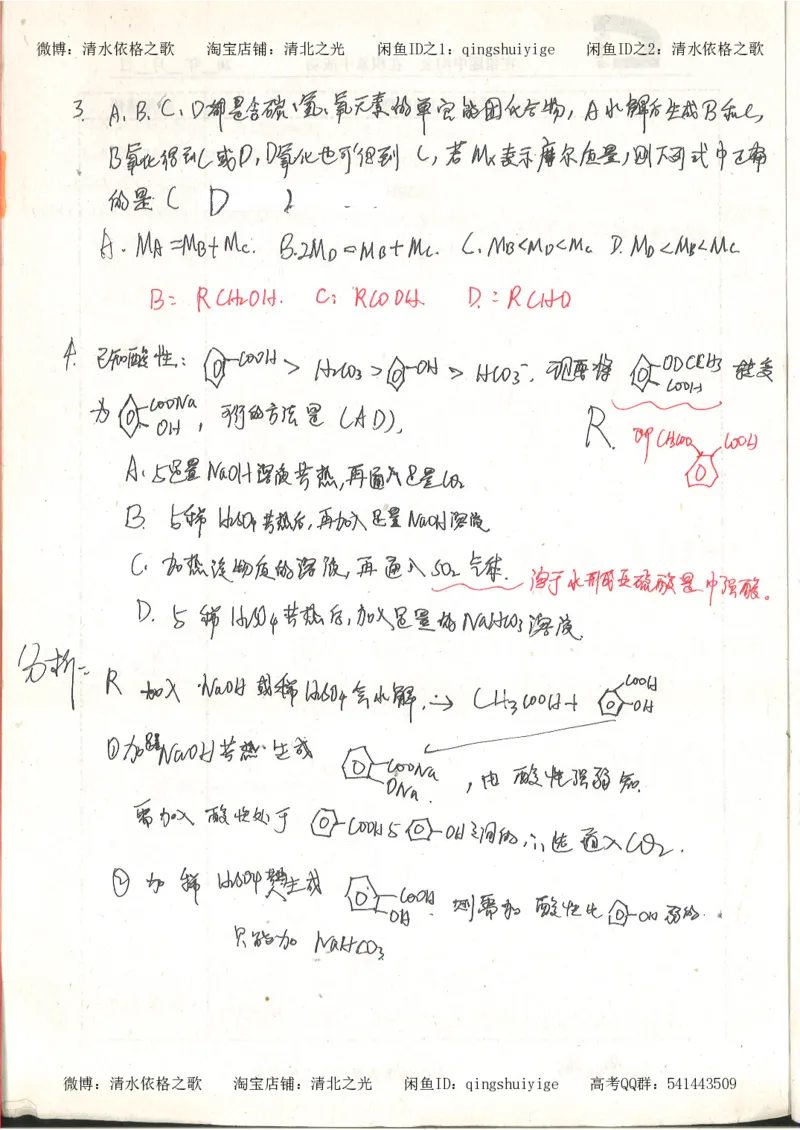 微博：清水依格之歌 淘宝店铺：清北之光 闲鱼ID之1：qingshuiyige 闲鱼ID之2：清水依格之歌
3. A、B、C、D都是含碳、氢、氧元素的单官能团化合物，A水解后生成B和C，
B氧化得到C或D，D氧化也可得到C，若M表示摩尔质量，则下列式中正确
的是（ D ）
A. MA=MB+MC. B. 2MD=MB+MC. C. MB<MD<MC D. MD<MB<MC
B= RCH2OH. C: RCOOH. D.= RCHO
4. 已知酸性： -COOH > H2CO3 > -OH > HCO3-，现要将 -OOCCH3 COOH 转变
为 -COONa OH，可行的方法是（AD），
R. 即 CH3COO COOH
A. 与足量NaOH溶液共热，再通入足量CO2
B. 与稀H2SO4共热后，再加入足量NaOH溶液
C. 加热该物质的溶液，再通入SO2气体. 溶于水形成亚硫酸是中强酸。
D. 与稀H2SO4共热后，加入足量的NaHCO3溶液.
分析：
R 加入 NaOH 或稀H2SO4会水解，∴→ CH3COOH + COOH -OH
①加足量NaOH共热生成 -COONa ONa ，由酸性强弱知.
需加入酸性处于 -COOH与 -OH之间的，∴选通入CO2.
② 加稀H2SO4共热生成 -COOH -OH. 则需加酸性比 -OH弱的.
只能加 NaHCO3
微博：清水依格之歌 淘宝店铺：清北之光 闲鱼ID：qingshuiyige 高考QQ群：541443509